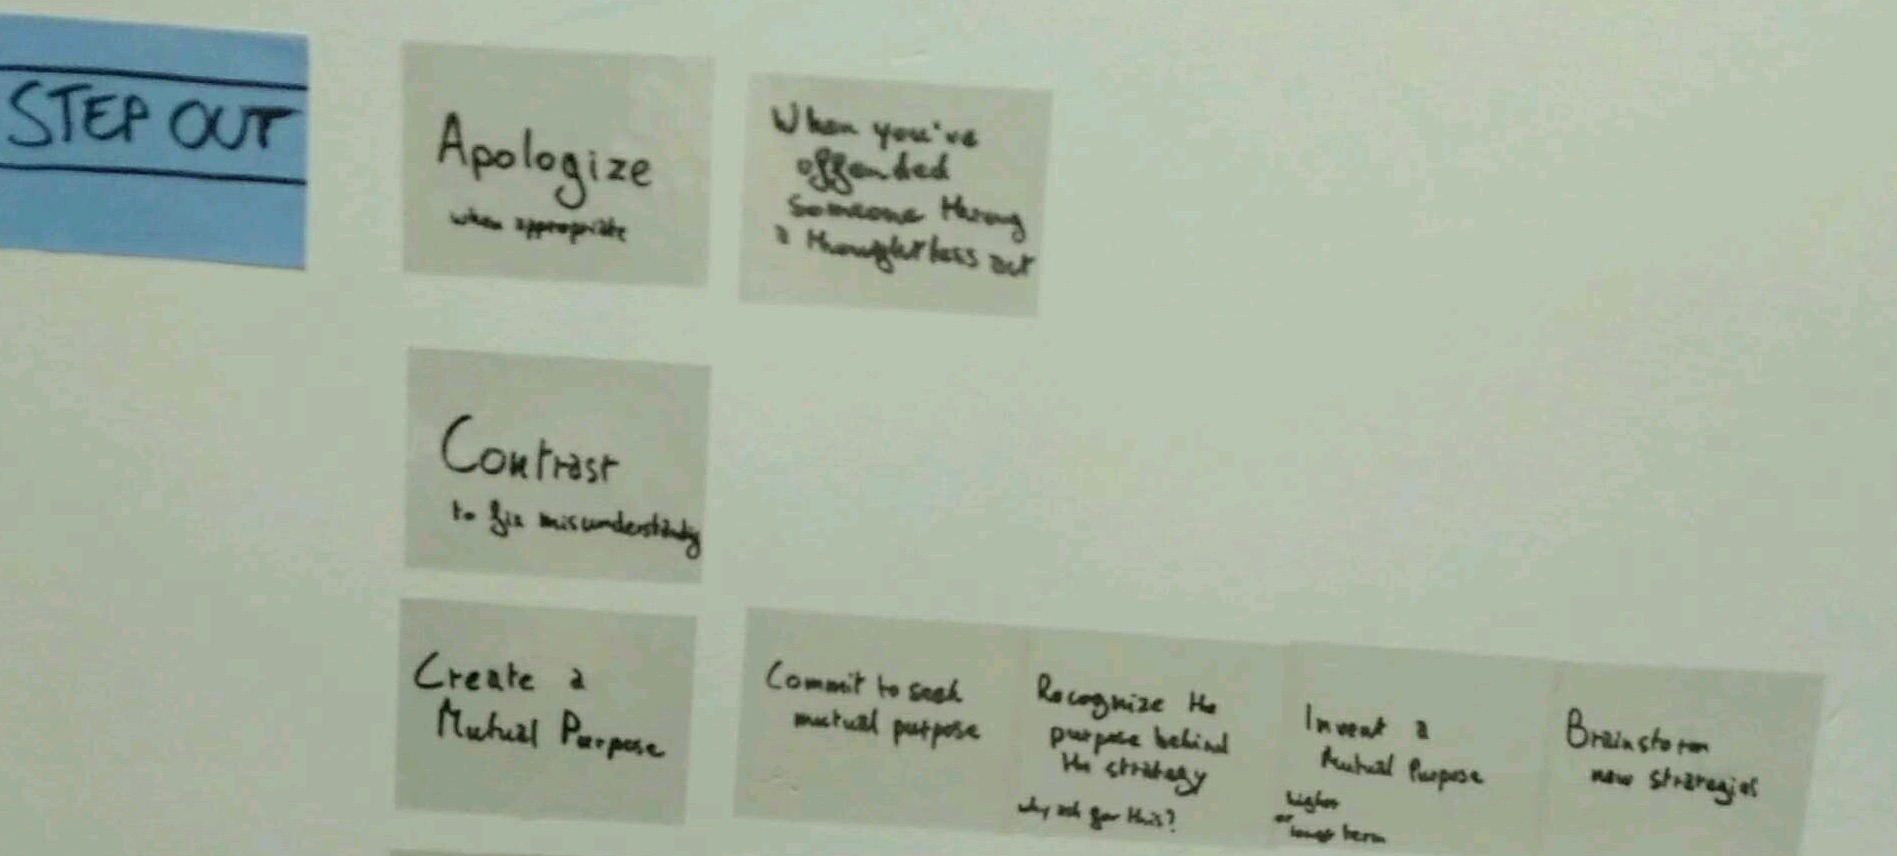 STEP OUT
Apologize
when appropriate
When you've
offended
someone throug
a thoughtless act
Contrast
to fix misunderstanding
Create a
Mutual Purpose
Commit to seek
mutual purpose
Recognize the
purpose behind
the strategy
why ask for this?
Invent a
Mutual Purpose
higher
or
longer term
Brainstorm
new strategies